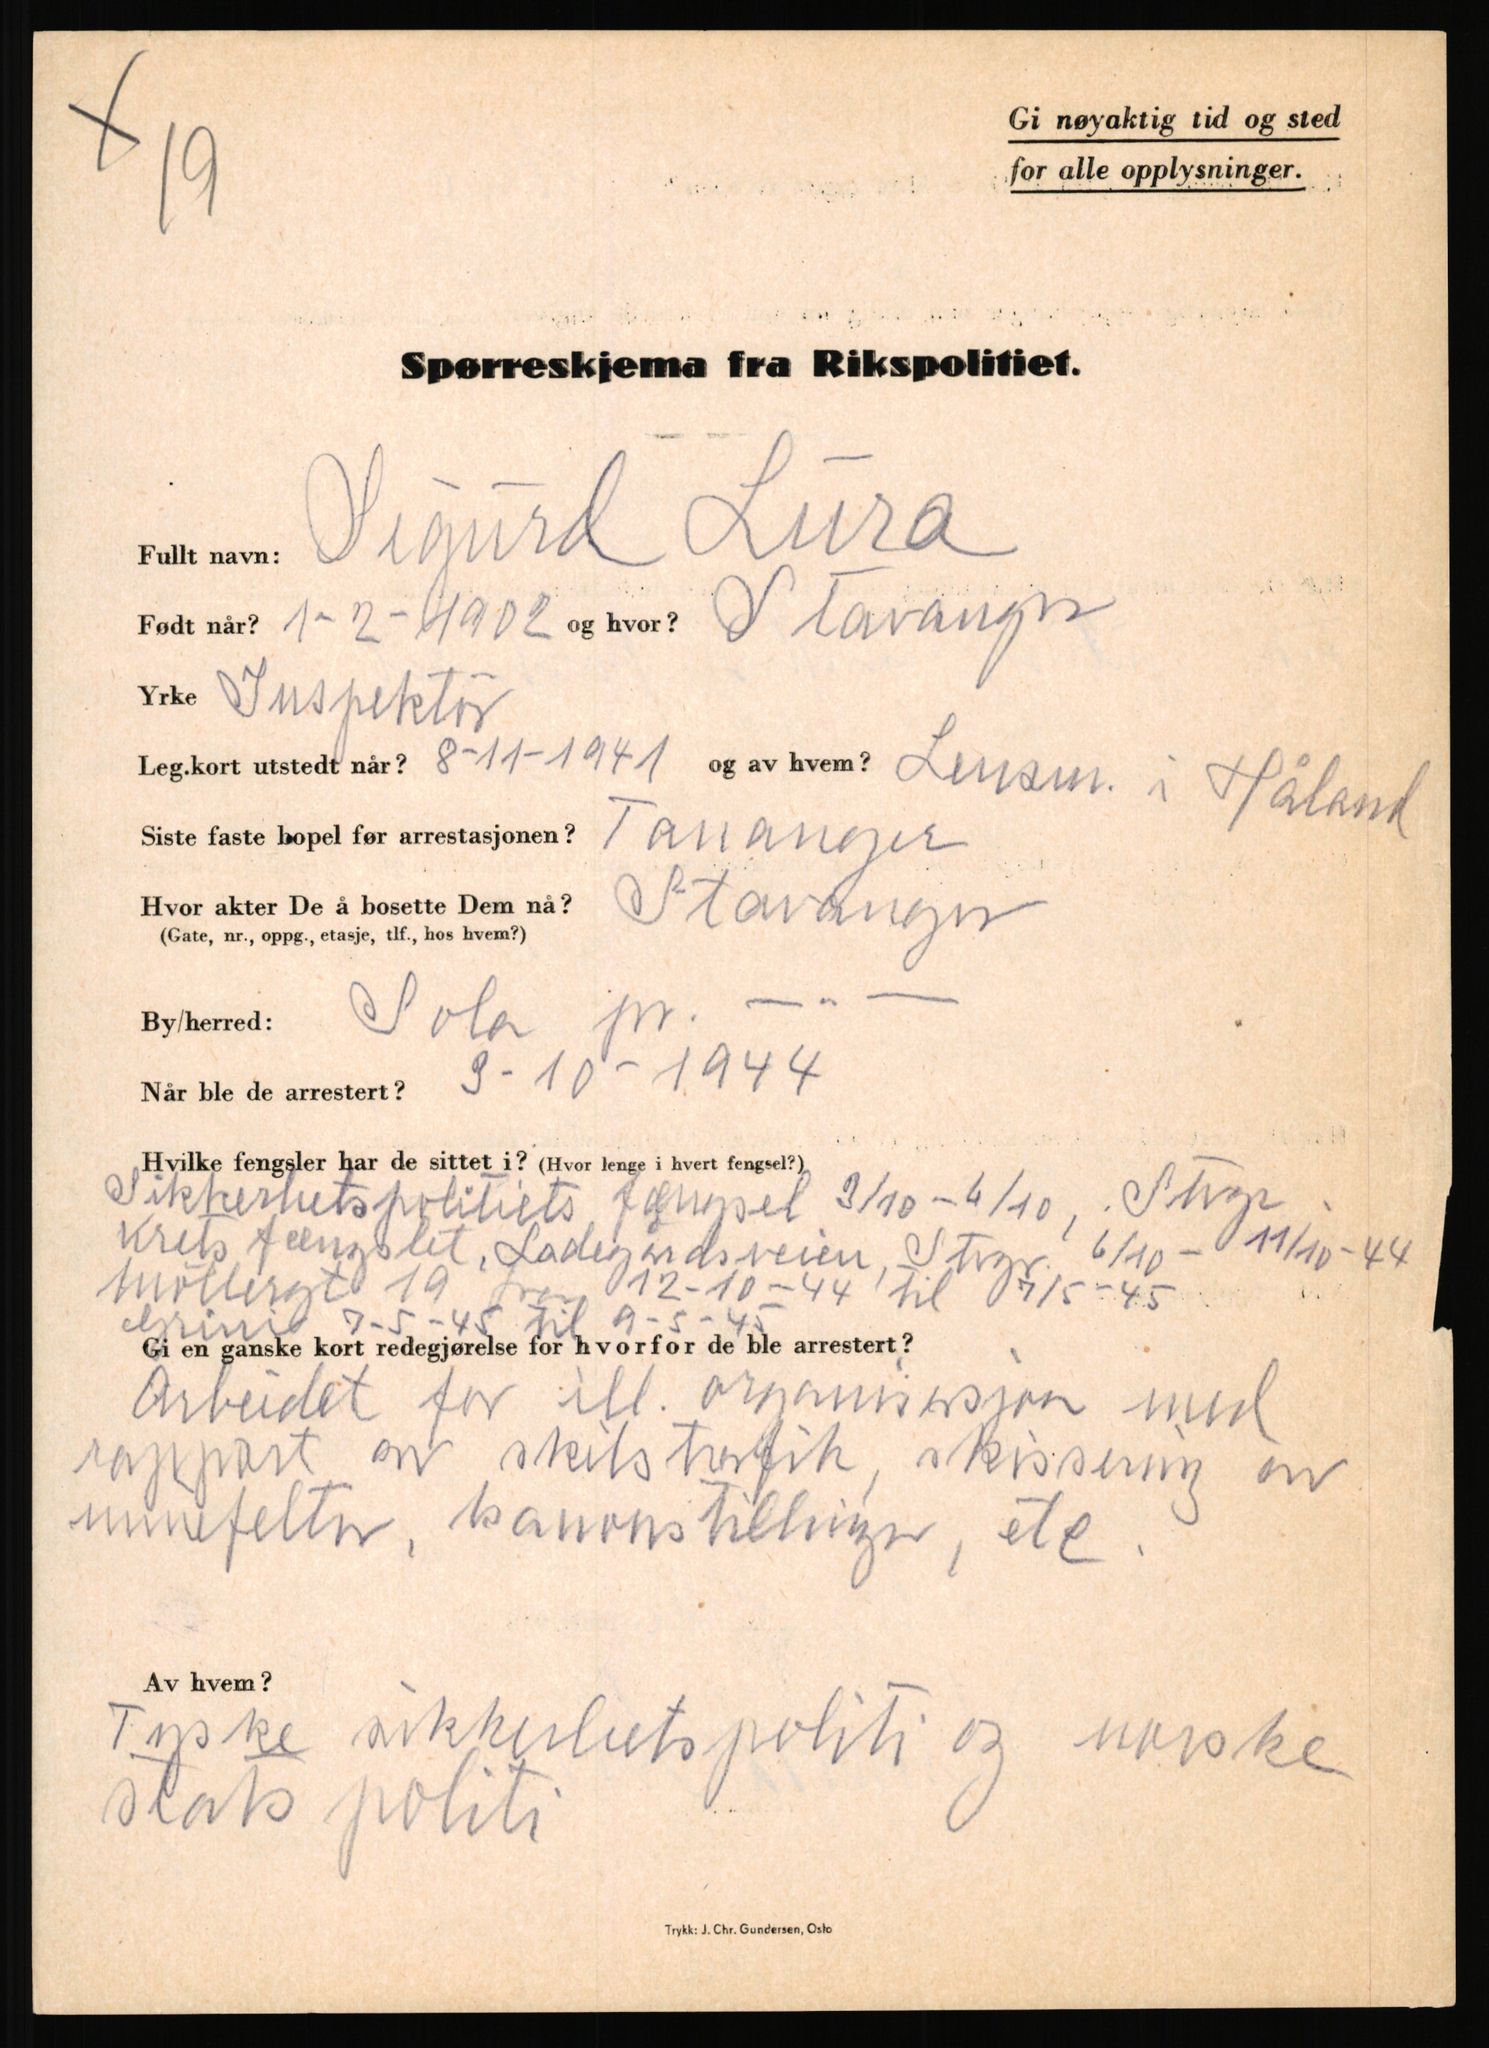 X
19
Gi nøyaktig tid og sted
for alle opplysninger.
Spørreskjema fra Rikspolitiet.
Fullt navn: Sigurd Lura
Født når? 1-2-1902 og hvor? Stavanger
Yrke Inspektör
Leg.kort utstedt når? 8-11-1941 og av hvem? Lensm. i Håland
Siste faste bopel før arrestasjonen? Tananger
Hvor akter De å bosette Dem nå? Stavanger
(Gate, nr., oppg., etasje, tlf., hos hvem?)
By/herred: Sola pr. — " —
Når ble de arrestert? 3-10-1944
Hvilke fengsler har de sittet i? (Hvor lenge i hvert fengsel?)
Sikkerhetspolitiets fængsel 3/10-6/10, Stvgr.
Krets fængslet, Ladegårdsveien, Stvgr. 6/10 - 11/10-44
Möllergt 19 fra 12-10-44 til 7/5-45
Grini 7-5-45 til 9-5-45
Gi en ganske kort redegjørelse for hvorfor de ble arrestert?
Arbeidet for ill. organisasjon med
rapport av skibstrafik, skissering av
minefelter, kanonstillinger, etc.
Av hvem?
Tyske sikkerhetspoliti og norske
stats politi
Trykk: J. Chr. Gundersen, Oslo